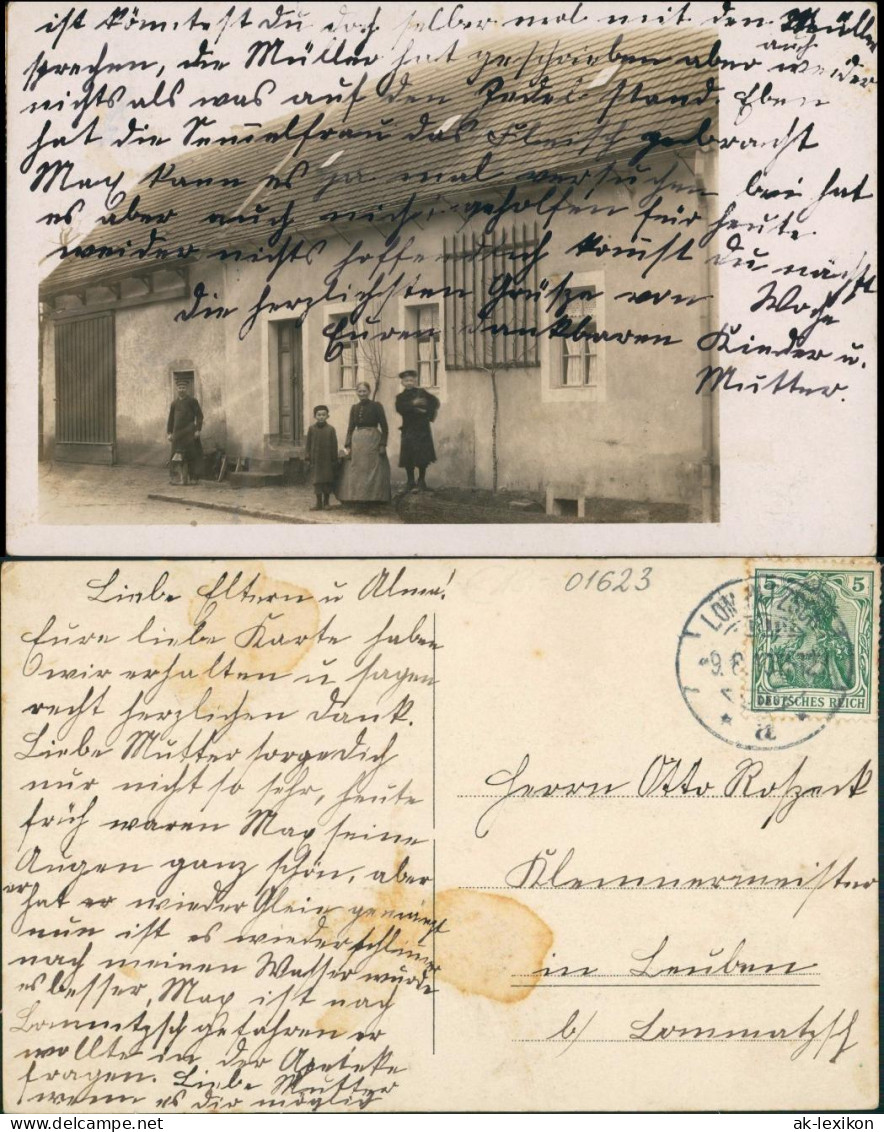 ist könntest du doch selber mal mit den Mülle
sprechen, die Müller hat geschrieben aber auch weider
nichts als was auf den Zedel stand. Eben
hat die Semmelfrau das Fleisch gebracht
Max kann es ja mal versuchen bei hat
es aber auch nicht geholfen für heute
weider nichts hoffendlich kommst du nächst
die herzlichsten Grüsze von Woche
Euren dankbaren Kinder u.
Mutter.
Liebe Eltern u Alma!
Eure liebe Karte haben
wir erhalten u sagen
recht herzlichen Dank.
Liebe Mutter sorge dich
nur nicht so sehr, heute
früh waren Max seine
Augen ganz schön, aber
hat er wieder Glein
nun ist es wieder schlimer
nach meinen Wasser wurde
es besser, Max ist nach
Lommatzsch gefahren er
wollte in der Apoteke
fragen. Liebe Mutter
wenn es dir möglich
01623
5 5
DEUTSCHES REICH
a
Herrn Otto Roszeck
Klemnermeister
in Leuben
b/ Lommatzsch
ak-lexikon.com